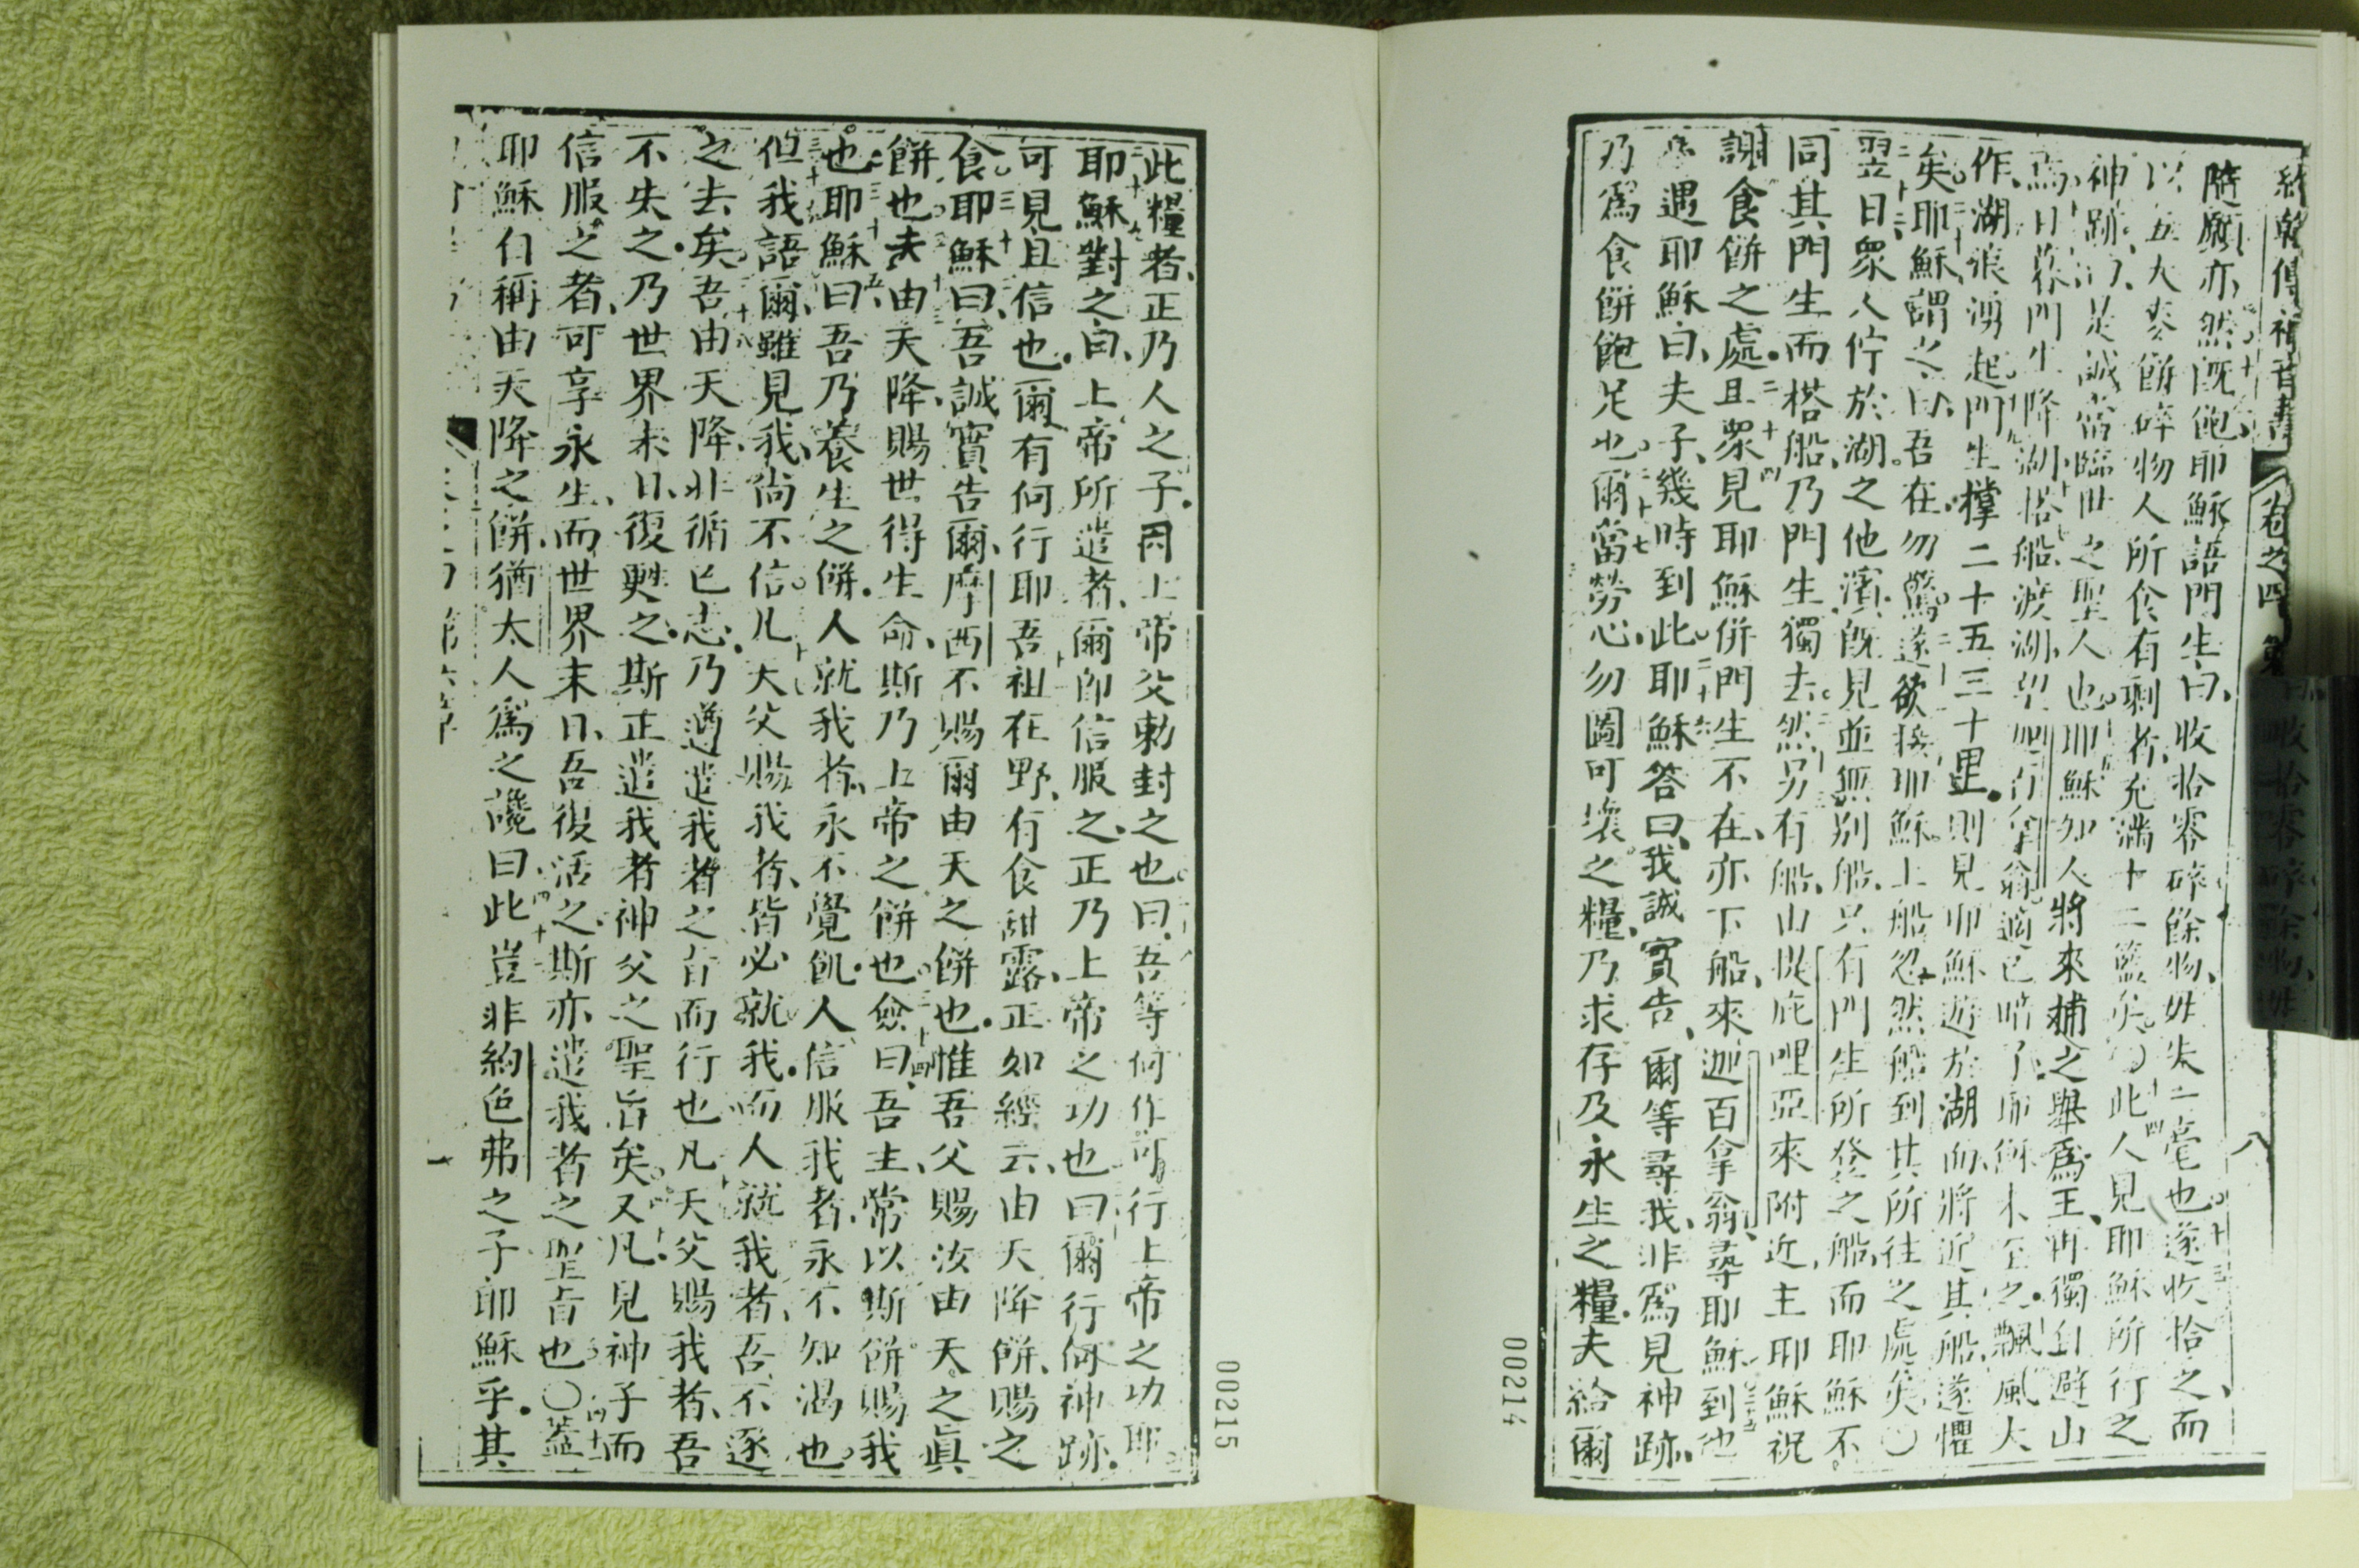 約翰傳福音書 卷之四
八
隨願亦然既飽耶穌語門生曰收拾零碎餘物毋失一毫也遂收拾之而
以五大麥餅碎物人所食有剩者充滿十二籃矣〇此人見耶穌所行之
神跡曰是誠當臨世之聖人也耶穌知人將來捕之舉爲王再獨自避山
焉日暮門生降湖搭船渡湖望加百拿翁適已暗了耶穌未至之飄風大
作湖浪湧起門生撐二十五三十里則見耶穌遊於湖面將近其船遂懼
矣耶穌謂之曰吾在勿驚遂欲接耶穌上船忽然船到其所往之處矣〇
翌日衆人佇於湖之他濱既見並無別船只有門生所登之船而耶穌不
同其門生而搭船乃門生獨去然另有船由提庇哩亞來附近主耶穌祝
謝食餅之處且衆見耶穌併門生不在亦下船來迦百拿翁尋耶穌到池
遇耶穌曰夫子幾時到此耶穌答曰我誠實告爾等尋我非爲見神跡
乃爲食餅飽足也爾當勞心勿圖可壞之糧乃求存及永生之糧夫給爾
00214
此糧者正乃人之子因上帝父勅封之也曰吾等何作可行上帝之功耶
耶穌對之曰上帝所遣者爾即信服之正乃上帝之功也曰爾行何神跡
可見且信也爾有何行耶吾祖在野有食甜露正如經云由天降餅賜之
食耶穌曰吾誠實告爾摩西不賜爾由天之餅也惟吾父賜汝由天之眞
餅也夫由天降賜世得生命斯乃上帝之餅也僉曰吾主常以斯餅賜我
也耶穌曰吾乃養生之餅人就我者永不覺飢人信服我者永不知渴也
但我語爾雖見我尚不信凡天父賜我者皆必就我而人就我者吾不逐
之去矣吾由天降非循己志乃遵遣我者之旨而行也凡天父賜我者吾
不失之乃世界末日復甦之斯正遣我者神父之聖旨矣又凡見神子而
信服之者可享永生而世界末日吾復活之斯亦遣我者之聖旨也〇蓋
耶穌自稱由天降之餅猶太人爲之讒曰此豈非約色弗之子耶穌乎其
00215